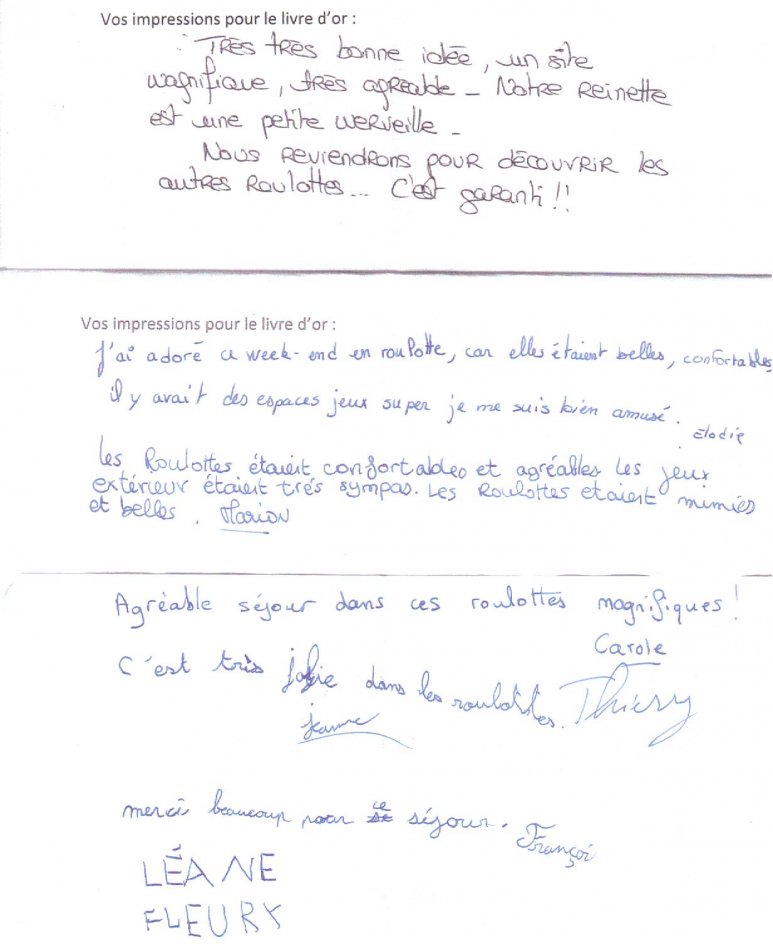 Vos impressions pour le livre d'or :
Très très bonne idée, un site
magnifique, très agréable - Notre Reinette
est une petite merveille -
Nous reviendrons pour découvrir les
autres Roulottes... C'est garanti !!
Vos impressions pour le livre d'or :
J'ai adoré ce week-end en roulotte, car elles étaient belles, confortables
il y avait des espaces jeux super je me suis bien amusé.
Elodie
Les Roulottes étaient confortables et agréables les jeux
extérieur étaient trés sympas. Les Roulottes etaient mimies
et belles. Marion
Agréable séjour dans ces roulottes magnifiques !
Carole
C'est très jolie dans les roulottes.
Thierry
jeanne
merci beaucoup pour ce séjour.
Françoi
LÉANE
FLEURY